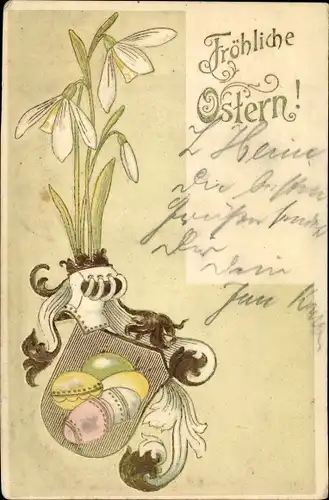 Fröhliche
Ostern!
L Heine
Die besten
Grüße sendet
Dir
Dein